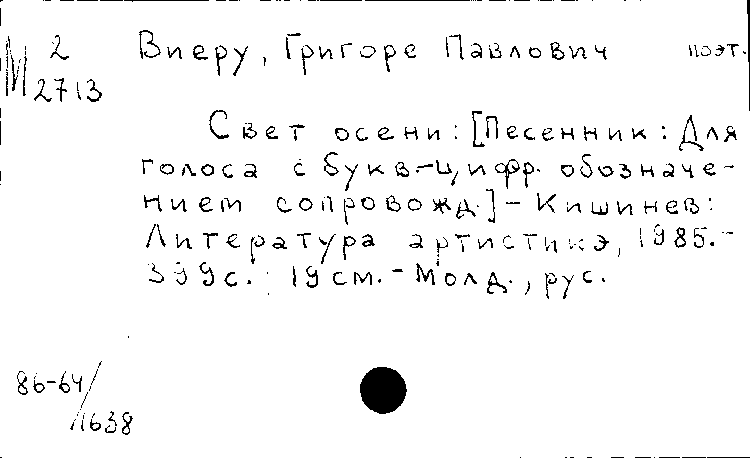 М 2 Виеру, Григоре Павлович поэт.
2713
Свет осени: [Песенник: Для
голоса с букв.-цифр. обозначе-
нием сопровожд.] - Кишинев:
Литература артистикэ, 1985.-
399с.: 19см. - Молд., рус.
86-64/
1638